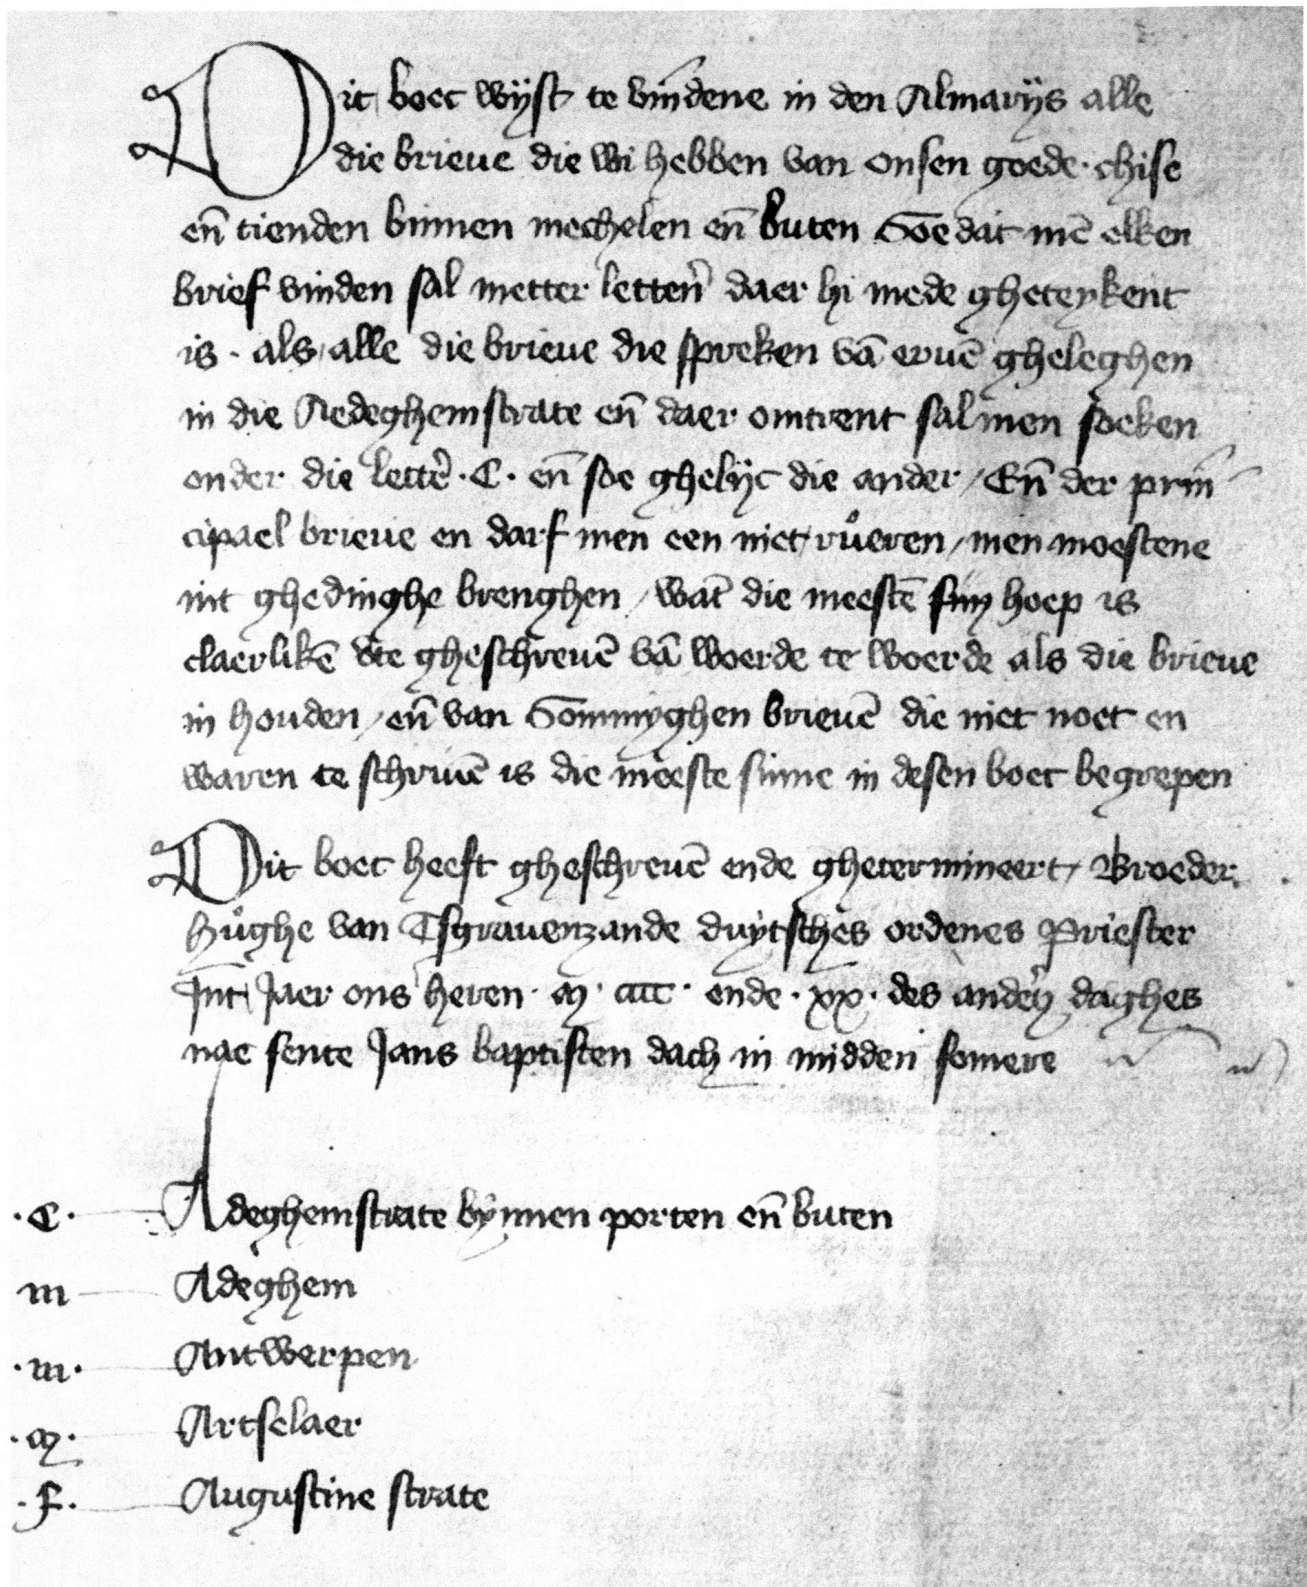 Dit boec wijst te vīndene in den Almarijs alle
die brieue die wi hebben van onsen goede · chise
en̄ tienden binnen mechelen en̄ buten Soe dat mē elken
brief vinden sal metter letteꝛ̄ daer hi mede gheteykent
is · als alle die brieue die spreken vā eruē gheleghen
in die Aedeghemstrate en̄ daer omtrent salmen soeken
onder die letter̄ · C · en̄ soe ghelijc die ander / En̄ der prin
cipael brieue en darf men een niet růeren / men moestene
int ghedinghe brenghen / wāt die meestē sin hoep is
claerlikē vte ghescreuē vā woerde te woerde als die brieue
in houden / en̄ van Sommyghen brieuē die niet noet en
waren te schriuē is die meeste sinne in desen boec begrepen
Dit boec heeft gheschreuē ende ghetermineert / Broeder
Hůghe van Tsgrauenzande duytsches ordenes Priester
Int Jaer ons heren · M · cccc · ende · xx · des andern daghes
nae sente Jans baptisten dach in midden somere
· C · Adeghemstrate bynnen porten en̄ buten
m Adeghem
· m · Antwerpen
· M · Artselaer
· F · Augustine strate